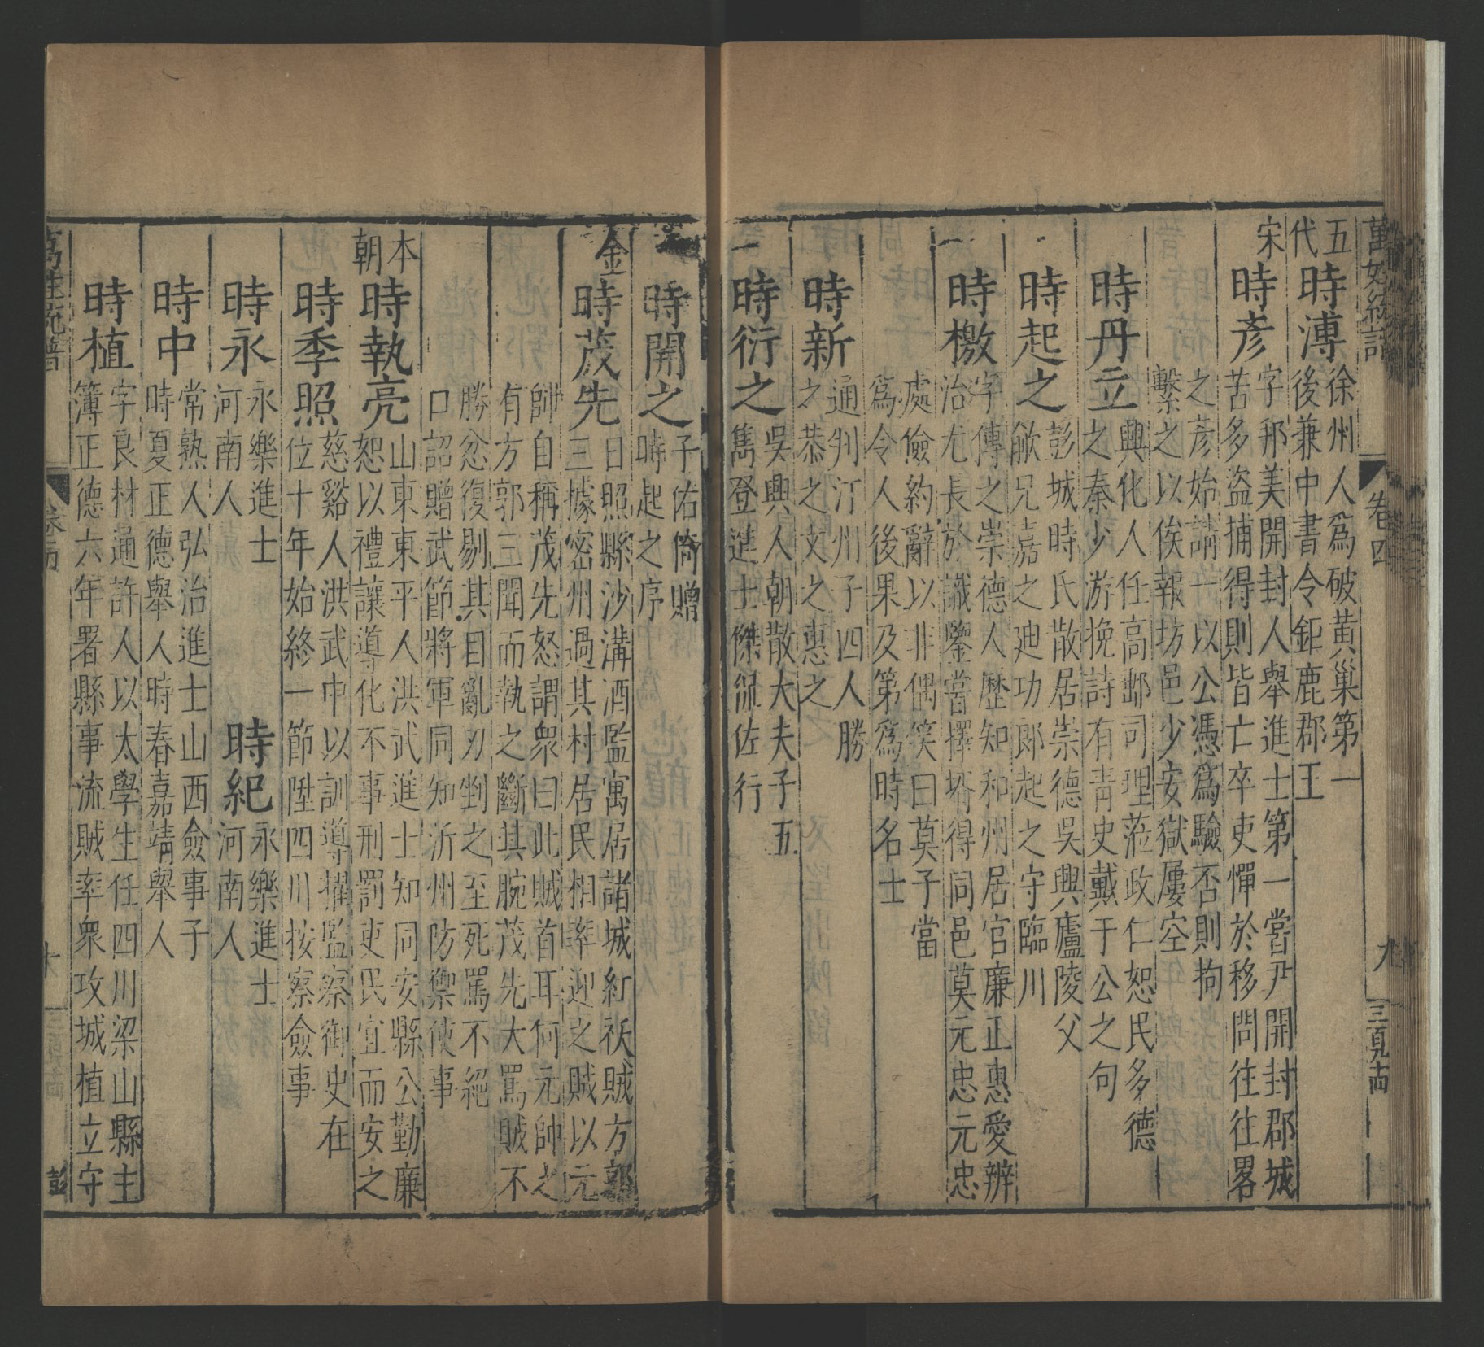 萬姓統譜
卷四
九
三頁古
五代
時溥
徐州人為破黃巢第一
後兼中書令鉅鹿郡王
宋
時彥
字邦美開封人舉進士第一嘗尹開封郡城
苦多盜捕得則皆亡卒吏憚於移問往往畧
之彥始請一以公憑為驗否則拘
繫之以俟報坊邑少安獄屢空
時丹立
興化人任高郵司理蒞政仁恕民多德
之秦少游挽詩有青史戴于公之句
時起之
彭城時氏散居崇德吳興廬陵父
歊兄嘉之迪功郎起之守臨川
時檄
字傳之崇德人歷知和州居官廉正惠愛辨
治尤長於識鑒嘗擇塔得同邑莫元忠元忠
處儉約辭以非偶笑曰莫子當
為令人後果及第為時名士
時新
通判汀州子四人勝
之恭之文之惠之
時衍之
吳興人朝散大夫子五
雋登進士傑㑺佐行
時開之
子佑倚贈
時起之序
金
時茂先
日照縣沙溝酒監寓居諸城紅衭賊方郭
三據密州過其村居民相率迎之賊以元
帥自稱茂先怒謂衆曰此賊首耳何元帥之
有方郭三聞而執之斷其腕茂先大罵賊不
勝忿復剔其目亂刃剉之至死罵不絕
口詔贈武節將軍同知沂州防禦使事
本朝
時執亮
山東東平人洪武進士知同安縣公勤廉
恕以禮讓導化不事刑罰吏民宜而安之
時季照
慈谿人洪武中以訓導擢監察御史在
位十年始終一節陞四川按察僉事
時永
永樂進士
河南人
時紀
永樂進士
河南人
時中
常熟人弘治進士山西僉事子
時夏正德舉人時春嘉靖舉人
時植
字良材通許人以太學生任四川梁山縣主
簿正德六年署縣事流賊率衆攻城植立守
萬姓統譜
卷四
彭